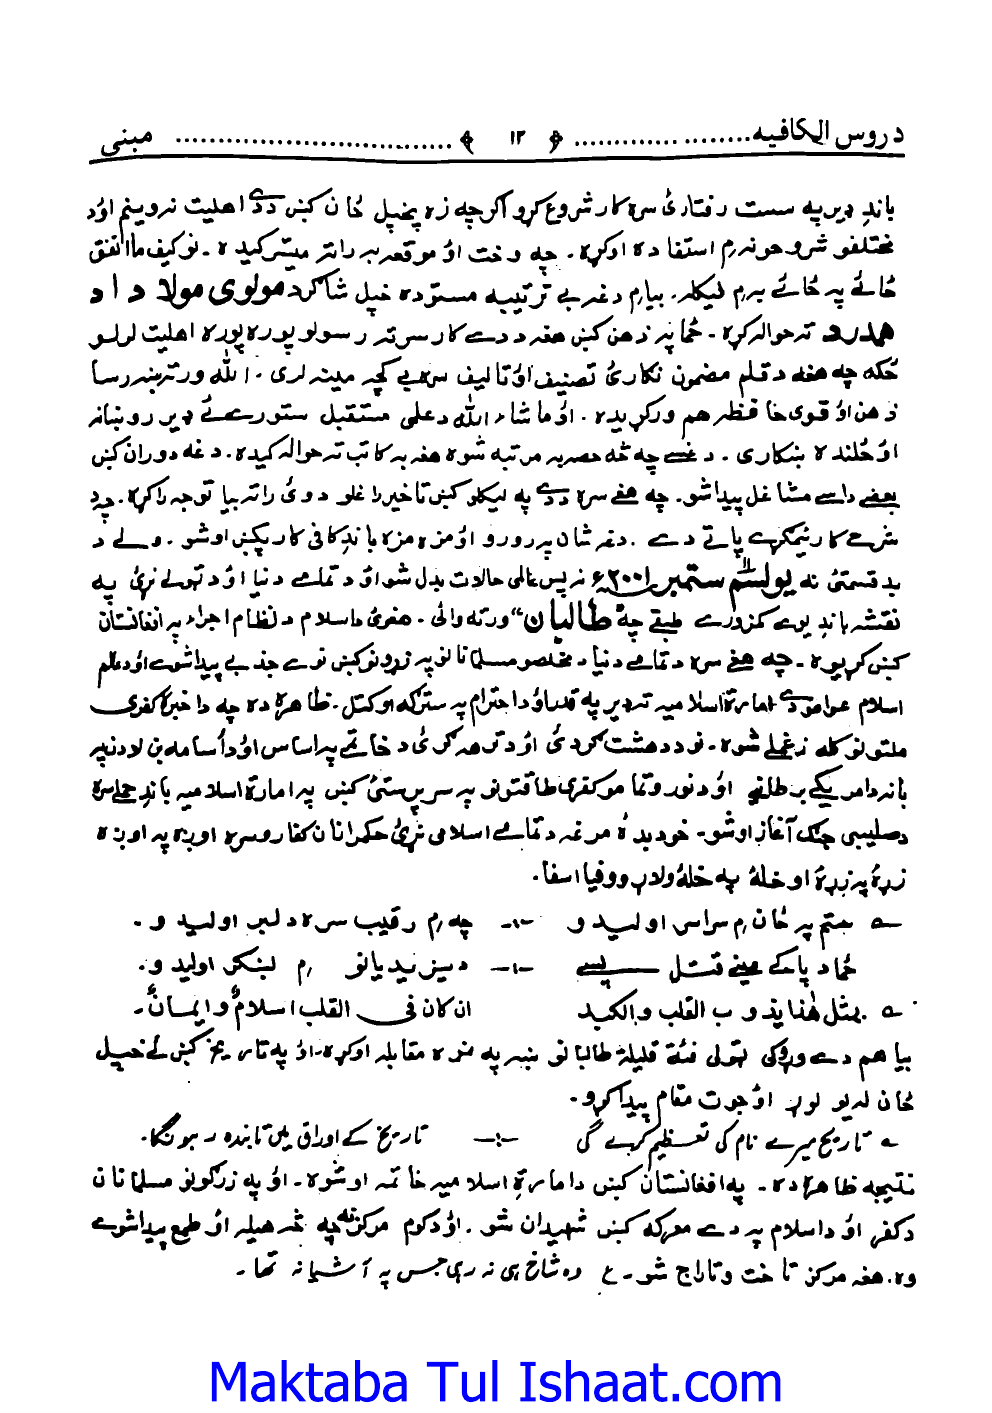 دروس الکافیه ........................ ﴿ ۱۲ ﴾ ................................ مبنی
باندِ ډیر په سست رفتارئ سره کار شروع کړو اګرچه زه پخپل ځان کښ دَدے اهلیت نه وینم اؤد
مختلفو شروحونه م استفاده اوکړه. چه وخت اؤ موقعه به راته میسر کیده. نو کیف ما اتفق
ځائے په ځائے به م لیکله. بیا م دغه بے ترتیبه مسوده خپل شاګرد مولوی مولا داد
همدرد ته حواله کړه. ځما په ذهن کښ هغه ددے کار سرته رسولو پوره پوره اهلیت لرلو
ځکه چه هغه د قلم مضمون نګارئ تصنیف اؤ تالیف سره بے کچه مینه لری. الله ورته ښه رسا
ذهن اؤ قوی حافظه هم ورکړیده. اؤ ماشاء الله د علمی مستقبل ستورے ئے ډیر روښانه
اؤ ځلنده ښکاری. دغسے چه څه حصه به مرتبه شوه هغه به کاتب ته حواله کیده. دغه دوران کښ
بعضے داسے مشاغل پیدا شو. چه هغے سره دَدے په لیکلو کښ تاخیر راغلو دوئ راته بیا توجه راکړه. چه د
شرحے کار نیمګړے پاتے دے. دغه شان په رو رو اؤ مزه مزه باندِ کافی کار پکښ اوشو. ولے د
بدقسمتئ نه یولسم ستمبر ۲۰۰۱ء نه پس عالمی حالات بدل شو اؤ د تمامے دنیا اؤ د ټولے نړئ په
نقشه باندِ یوے کمزورے طبقے چه "طالبان" ورته وائی. هغوئ د اسلام د نظام اجراء په افغانستان
کښ کړیوه. چه هغے سره د تمامے دنیا د مخلصو مسلمانانو په زړونو کښ نوے جذبے پیدا شوے اؤ د عالم
اسلام عوامو دے امارة اسلامیه ته ډیر په قدر اؤ د احترام په سترګه اوکتل. ظاهره ده چه دا خبره کفری
ملتونو کله زغملے شوه. نو د دهشت ګردئ اؤ د ترهه ګرئ د خاتمے په اساس اؤ د اُسامه بن لادن په
بانه د امریکے برطانیے اؤ د نورو تمامو کفری طاقتونو په سرپرستئ کښ په امارة اسلامیه باندِ حملے سره
د صلیبی جنګ آغاز اوشو. خود بده مرغه د تمامے اسلامی نړئ حکمرانان کفارو سره اوږه په اوږه
زړهٔ په زړهٔ او خلهٔ په خلهٔ ولاړ وو فیا اسفا.
؎ چتم په ځان م سراسی اولیدو -:- چه م رقیب سره دلبر اولیدو.
ځما د پاکے مینے قتل پسے -:- د سیزیدیانو م لښکر اولیدو.
؎ بمثل هٰذا یذوب القلب والکبد ان کان فی القلب اسلامٌ وایمانٌ.
بیا هم دے وړوکی ټولی فئة قلیلة طالبانو ښه په مړه مقابله اوکړه. اؤ په تاریخ کښ ئے خپل
ځان له یو لوړ اؤ جوت مقام پیدا کړو.
؎ تاریخ میرے نام کی تعظیم کرے گی -:- تاریخ کے اوراق میں تابنده رہوںگا.
نتیجه ظاهره ده. په افغانستان کښ د امارةِ اسلامیه خاتمه اوشوه. اؤ په زرګونو مسلمانان
د کفر اؤ د اسلام په دے معرکه کښ شهیدان شو. اؤ د کوم مرکز نه چه څه هیله اؤ طمع پیدا شوے
وه. هغه مرکز تاخت وتاراج شو. ع وه شاخ ہی نه رہی جس په آشیانه تھا.
Maktaba Tul Ishaat.com